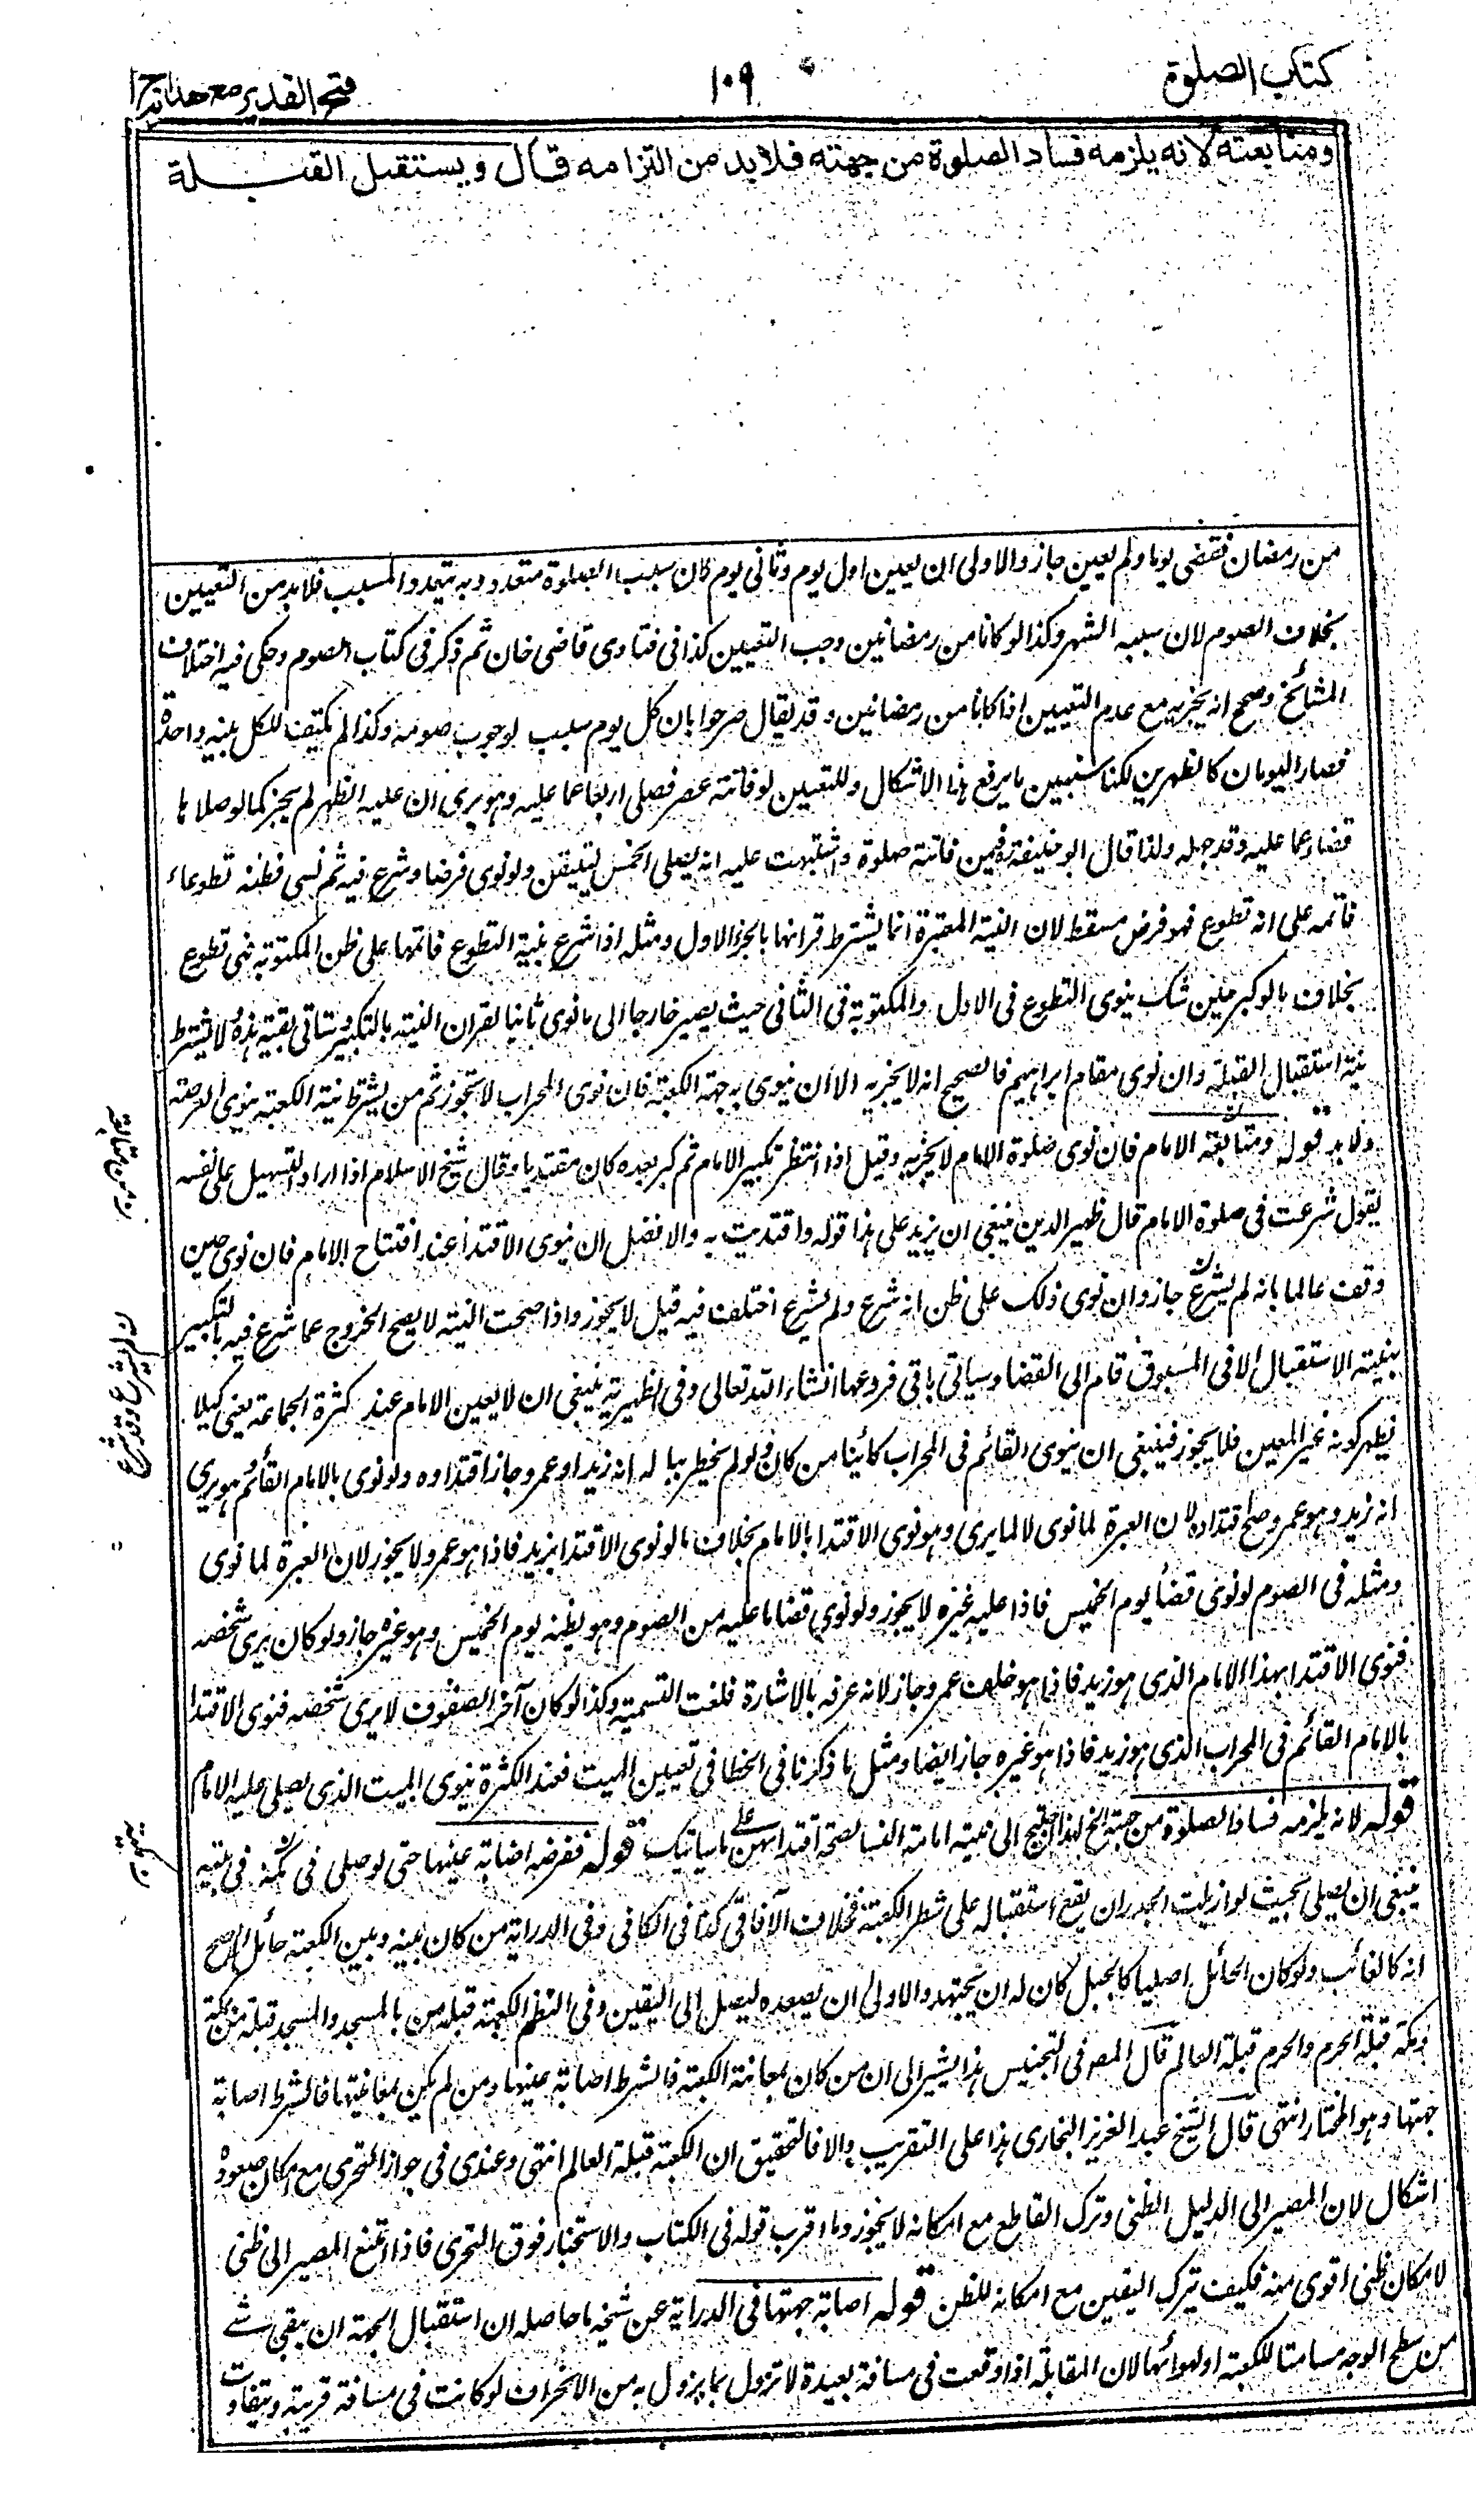 كتاب الصلوة
١٠٩
فتح القدير مع هدايه ج ١
ومتابعته لانه يلزمه فساد الصلوة من جهته فلا بد من التزامه قال ويستقبل القبلة
من رمضان فقضى يوما ولم يعين جاز والاولى ان يعين اول يوم وثانى يوم كان سبب الصلوة متعدد وبه يتعدد المسبب فلا بد من التعيين
بخلاف الصوم لان سببه الشهر وكذا لو كانا من رمضانين وجب التعيين كذا فى فتاوى قاضى خان ثم ذكر فى كتاب الصوم وحكى فيه اختلاف
المشائخ وصحح انه يجزيه مع عدم التعيين اذا كانا من رمضانين وقد يقال صرحوا بان كل يوم سبب لوجوب صومه وكذا لم يكتف للكل بنية واحدة
فصار اليومان كالظهرين لكنا سنبين ما يرفع هذا الاشكال وللتعيين لو فاتته عصر فصلى اربعا عما عليه وهو يرى ان عليه الظهر لم يجز كما لو صلاها
قضاء عما عليه وقد جهله ولذا قال ابو حنيفة فيمن فاتته صلوة واشتبهت عليه انه يصلى الخمس ليتيقن ولو نوى فرضا وشرع فيه ثم نسى فظنه تطوعا
فاتمه على انه تطوع فهو فرض مسقط لان النية المعتبرة انما يشترط قرانها بالجزء الاول ومثله اذا شرع بنية التطوع فاتمها على ظن المكتوبة فهى تطوع
بخلاف ما لو كبر حين شك ينوى التطوع فى الاول والمكتوبة فى الثانى حيث يصير خارجا الى ما نوى ثانيا لقران النية بالتكبير وستاتى بقية هذه لا يشترط
نية استقبال القبلة وان نوى مقام ابراهيم فالصحيح انه لا يجزيه الا ان ينوى به جهة الكعبة فان نوى المحراب لا تجوز ثم من يشترط نية الكعبة ينوى العرصة
ولا بد قوله ومتابعة الامام فان نوى صلوة الامام لا يجزيه وقيل اذا انتظر تكبير الامام ثم كبر بعده كان مقتديا وقال شيخ الاسلام اذا اراد التسهيل على نفسه
يقول شرعت فى صلوة الامام قال ظهير الدين ينبغى ان يزيد على هذا قوله واقتديت به والافضل ان ينوى الاقتدا عند افتتاح الامام فان نوى حين
وقف عالما بانه لم يشرع جاز وان نوى ذلك على ظن انه شرع ولم يشرع اختلف فيه قيل لا يجوز واذا صحت النية لا يصح الخروج عما شرع فيه بالتكبير
بنية الاستقبال الا فى المسبوق قام الى القضا وسياتى باقى فروعها انشاء الله تعالى وفى الظهيرية ينبغى ان لا يعين الامام عند كثرة الجماعة يعنى كيلا
يظهر كونه غير المعين فلا يجوز فينبغى ان ينوى القائم فى المحراب كائنا من كان ولو لم يخطر بباله انه زيد او عمرو جاز اقتداوه ولو نوى بالامام القائم وهو يرى
انه زيد وهو عمرو صح اقتداوه لان العبرة لما نوى لا لما يرى وهو نوى الاقتدا بالامام بخلاف ما لو نوى الاقتدا بزيد فاذا هو عمرو لا يجوز لان العبرة لما نوى
ومثله فى الصوم لو نوى قضاء يوم الخميس فاذا عليه غيره لا يجوز ولو نوى قضا ما عليه من الصوم وهو يظنه يوم الخميس وهو غيره جاز ولو كان يرى شخصه
فنوى الاقتدا بهذا الامام الذى هو زيد فاذا هو خلف عمرو جاز لانه عرفه بالاشارة فلغت التسمية وكذا لو كان آخر الصفوف لا يرى شخصه فنوى الاقتدا
بالامام القائم فى المحراب الذى هو زيد فاذا هو غيره جاز ايضا ومثل ما ذكرنا فى الخطا فى تعيين الميت فعند الكثرة ينوى الميت الذى يصلى عليه الامام
قوله لانه يلزمه فساد الصلوة من جهته الخ لهذا احتيج الى نية امامة النسا لصحة اقتدائهن على ما سياتيك قوله ففرضه اصابة عينها حتى لو صلى فى مكة فى بيته
ينبغى ان يصلى بحيث لو ازيلت الجدران يقع استقباله على شطر الكعبة بخلاف الآفاقى كذا فى الكافى وفى الدراية من كان بينه وبين الكعبة حائل الاصح
انه كالغائب ولو كان الحائل اصليا كالجبل كان له ان يجتهد والاولى ان يصعده ليصل الى اليقين وفى النظم الكعبة قبلة من بالمسجد والمسجد قبلة من بمكة
ومكة قبلة الحرم والحرم قبلة العالم قال المصـ فى التجنيس هذا يشير الى ان من كان بمعاينة الكعبة فالشرط اصابة عينها ومن لم يكن بمعاينتها فالشرط اصابة
جهتها وهو المختار انتهى قال الشيخ عبد العزيز البخارى هذا على التقريب والا فالتحقيق ان الكعبة قبلة العالم انتهى وعندى فى جواز التحرى مع امكان صعوده
اشكال لان المصير الى الدليل الظنى وترك القاطع مع امكانه لا يجوز وما اقرب قوله فى الكتاب والاستخبار فوق التحرى فاذا امتنع المصير الى ظنى
لامكان ظنى اقوى منه فكيف يترك اليقين مع امكانه للظن قوله اصابة جهتها فى الدراية عن شيخه ما حاصله ان استقبال الجهة ان يبقى شے
من سطح الوجه مسامتا للكعبة او لهوائها لان المقابلة اذا وقعت فى مسافة بعيدة لا تزول بما يزول به من الانحراف لو كانت فى مسافة قريبة ويتفاوت